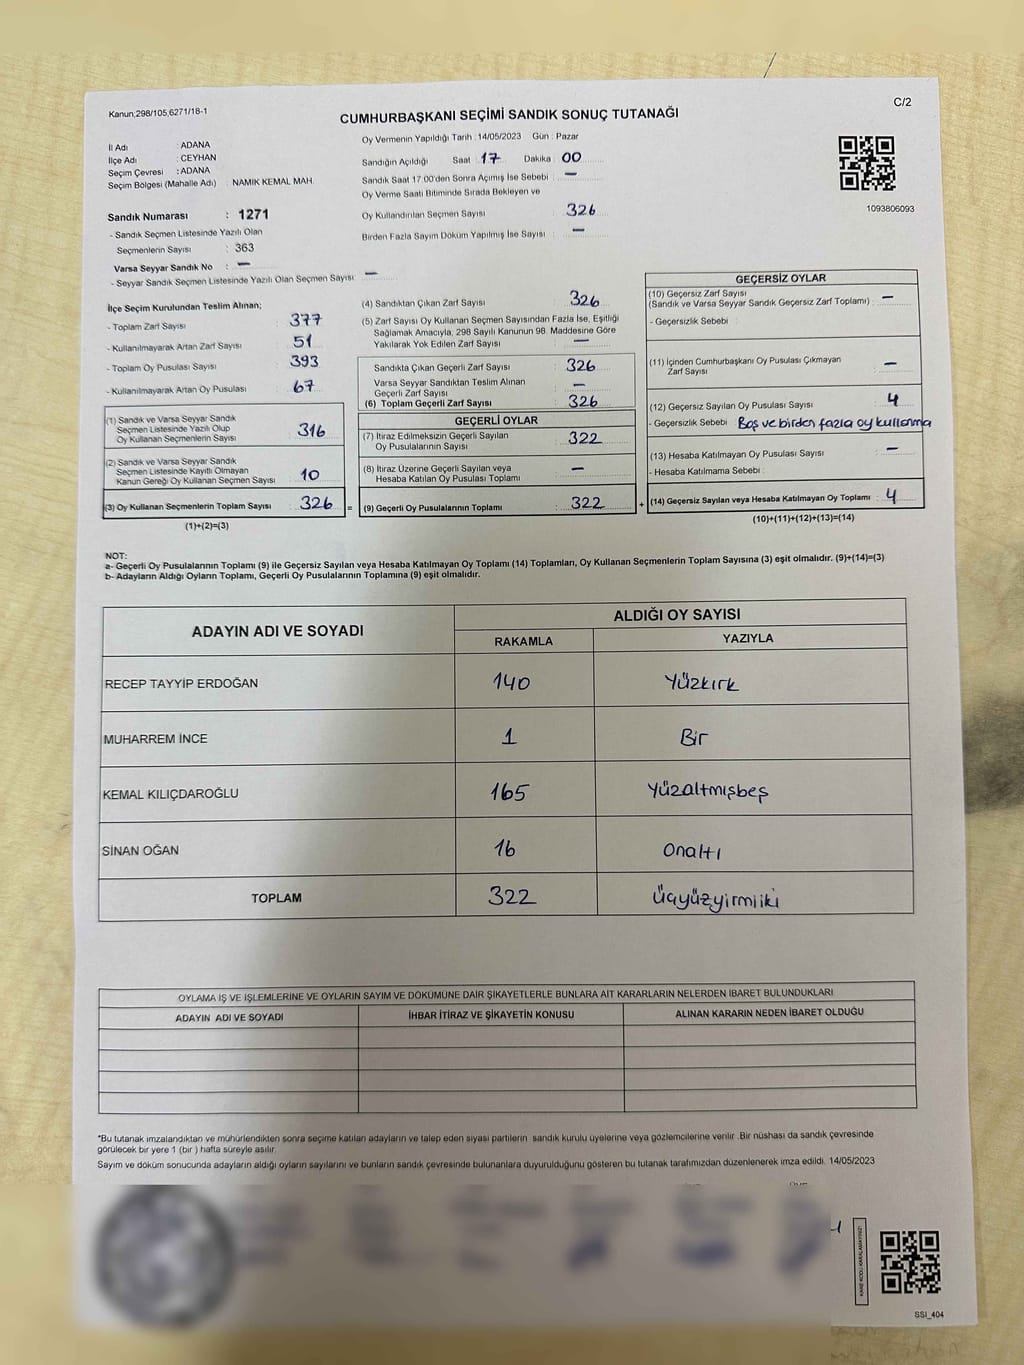 Kanun,298/105,6271/18-1
C/2
CUMHURBAŞKANI SEÇİMİ SANDIK SONUÇ TUTANAĞI
İl Adı : ADANA
İlçe Adı : CEYHAN
Seçim Çevresi : ADANA
Seçim Bölgesi (Mahalle Adı) : NAMIK KEMAL MAH.
Sandık Numarası : 1271
- Sandık Seçmen Listesinde Yazılı Olan
Seçmenlerin Sayısı : 363
Varsa Seyyar Sandık No : —
- Seyyar Sandık Seçmen Listesinde Yazılı Olan Seçmen Sayısı : —
Oy Vermenin Yapıldığı Tarih : 14/05/2023 Gün : Pazar
Sandığın Açıldığı Saat 17 Dakika 00
Sandık Saat 17:00'den Sonra Açımış İse Sebebi : —
Oy Verme Saati Bitiminde Sırada Bekleyen ve
Oy Kullandırılan Seçmen Sayısı : 326
Birden Fazla Sayım Döküm Yapılmış İse Sayısı : —
1093806093
İlçe Seçim Kurulundan Teslim Alınan;
- Toplam Zarf Sayısı : 377
- Kullanılmayarak Artan Zarf Sayısı : 51
- Toplam Oy Pusulası Sayısı : 393
- Kullanılmayarak Artan Oy Pusulası : 67
(1) Sandık ve Varsa Seyyar Sandık
Seçmen Listesinde Yazılı Olup
Oy Kullanan Seçmenlerin Sayısı : 316
(2) Sandık ve Varsa Seyyar Sandık
Seçmen Listesinde Kayıtlı Olmayan
Kanun Gereği Oy Kullanan Seçmen Sayısı : 10
(3) Oy Kullanan Seçmenlerin Toplam Sayısı : 326 =
(1)+(2)=(3)
(4) Sandıktan Çıkan Zarf Sayısı : 326
(5) Zarf Sayısı Oy Kullanan Seçmen Sayısından Fazla İse, Eşitliği
Sağlamak Amacıyla, 298 Sayılı Kanunun 98. Maddesine Göre
Yakılarak Yok Edilen Zarf Sayısı : —
Sandıkta Çıkan Geçerli Zarf Sayısı : 326
Varsa Seyyar Sandıktan Teslim Alınan
Geçerli Zarf Sayısı : —
(6) Toplam Geçerli Zarf Sayısı : 326
GEÇERLİ OYLAR
(7) İtiraz Edilmeksizin Geçerli Sayılan
Oy Pusulalarının Sayısı : 322
(8) İtiraz Üzerine Geçerli Sayılan veya
Hesaba Katılan Oy Pusulası Toplamı : —
(9) Geçerli Oy Pusulalarının Toplamı : 322 +
GEÇERSİZ OYLAR
(10) Geçersiz Zarf Sayısı
(Sandık ve Varsa Seyyar Sandık Geçersiz Zarf Toplamı) : —
- Geçersizlik Sebebi :
(11) İçinden Cumhurbaşkanı Oy Pusulası Çıkmayan
Zarf Sayısı : —
(12) Geçersiz Sayılan Oy Pusulası Sayısı : 4
- Geçersizlik Sebebi : Boş ve birden fazla oy kullanma
(13) Hesaba Katılmayan Oy Pusulası Sayısı : —
- Hesaba Katılmama Sebebi :
(14) Geçersiz Sayılan veya Hesaba Katılmayan Oy Toplamı : 4
(10)+(11)+(12)+(13)=(14)
NOT:
a- Geçerli Oy Pusulalarının Toplamı (9) ile Geçersiz Sayılan veya Hesaba Katılmayan Oy Toplamı (14) Toplamları, Oy Kullanan Seçmenlerin Toplam Sayısına (3) eşit olmalıdır. (9)+(14)=(3)
b- Adayların Aldığı Oyların Toplamı, Geçerli Oy Pusulalarının Toplamına (9) eşit olmalıdır.
ADAYIN ADI VE SOYADI ALDIĞI OY SAYISI
RAKAMLA YAZIYLA
RECEP TAYYİP ERDOĞAN 140 Yüzkırk
MUHARREM İNCE 1 Bir
KEMAL KILIÇDAROĞLU 165 Yüzaltmışbeş
SİNAN OĞAN 16 Onaltı
TOPLAM 322 Üçyüzyirmiiki
OYLAMA İŞ VE İŞLEMLERİNE VE OYLARIN SAYIM VE DÖKÜMÜNE DAİR ŞİKAYETLERLE BUNLARA AİT KARARLARIN NELERDEN İBARET BULUNDUKLARI
ADAYIN ADI VE SOYADI İHBAR İTİRAZ VE ŞİKAYETİN KONUSU ALINAN KARARIN NEDEN İBARET OLDUĞU
*Bu tutanak imzalandıktan ve mühürlendikten sonra seçime katılan adayların ve talep eden siyasi partilerin sandık kurulu üyelerine veya gözlemcilerine verilir .Bir nüshası da sandık çevresinde
görülecek bir yere 1 (bir ) hafta süreyle asılır.
Sayım ve döküm sonucunda adayların aldığı oyların sayılarını ve bunların sandık çevresinde bulunanlara duyurulduğunu gösteren bu tutanak tarafımızdan düzenlenerek imza edildi. 14/05/2023
KARE KODU KARALAMAYINIZ!
SSI_404